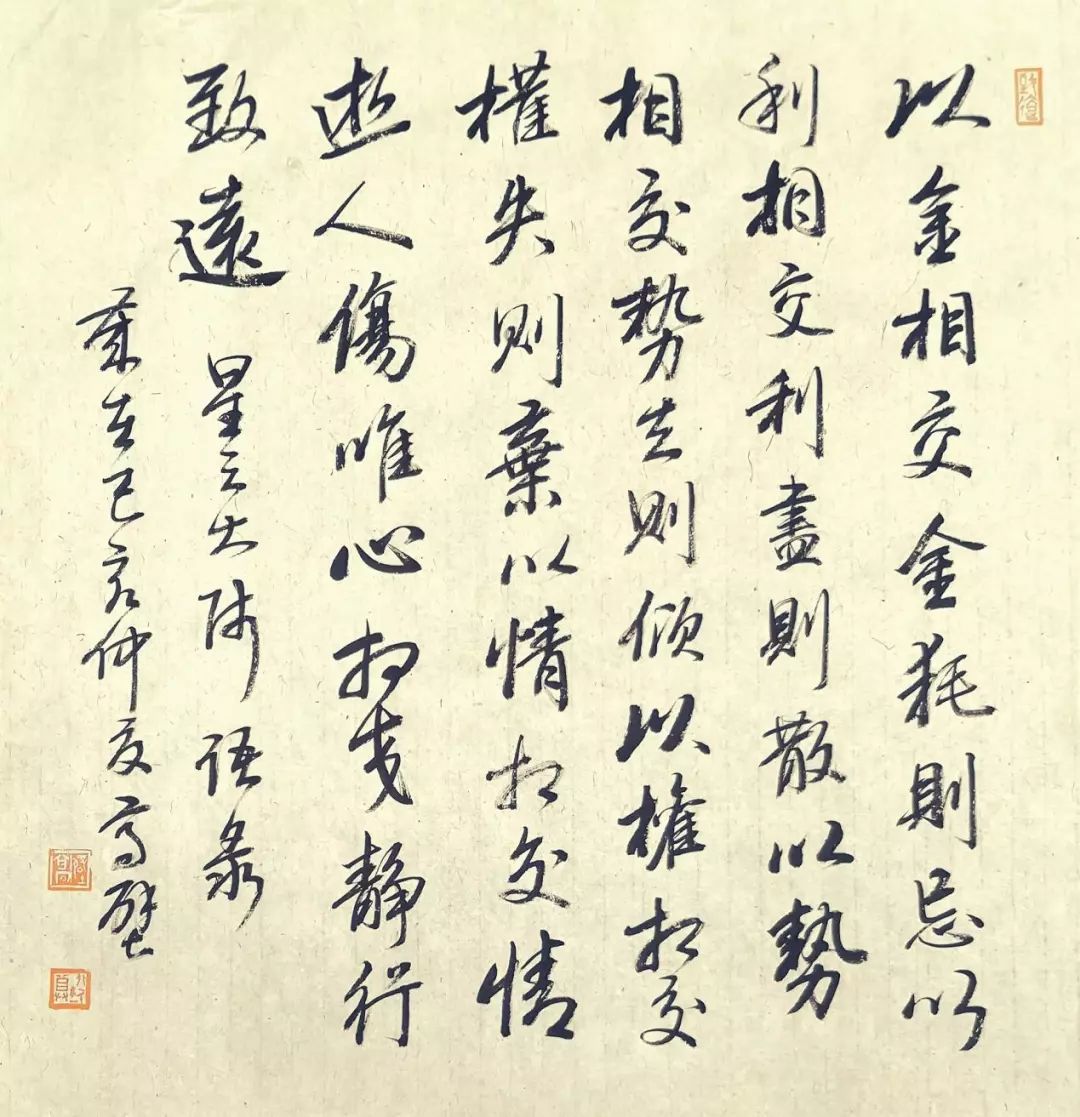 以金相交金耗則忌以
利相交利盡則散以勢
相交勢去则倾以權相交
權失则棄以情相交情
逝人傷唯心相交靜行
致遠 星云大师语录
歲在己亥仲夏高